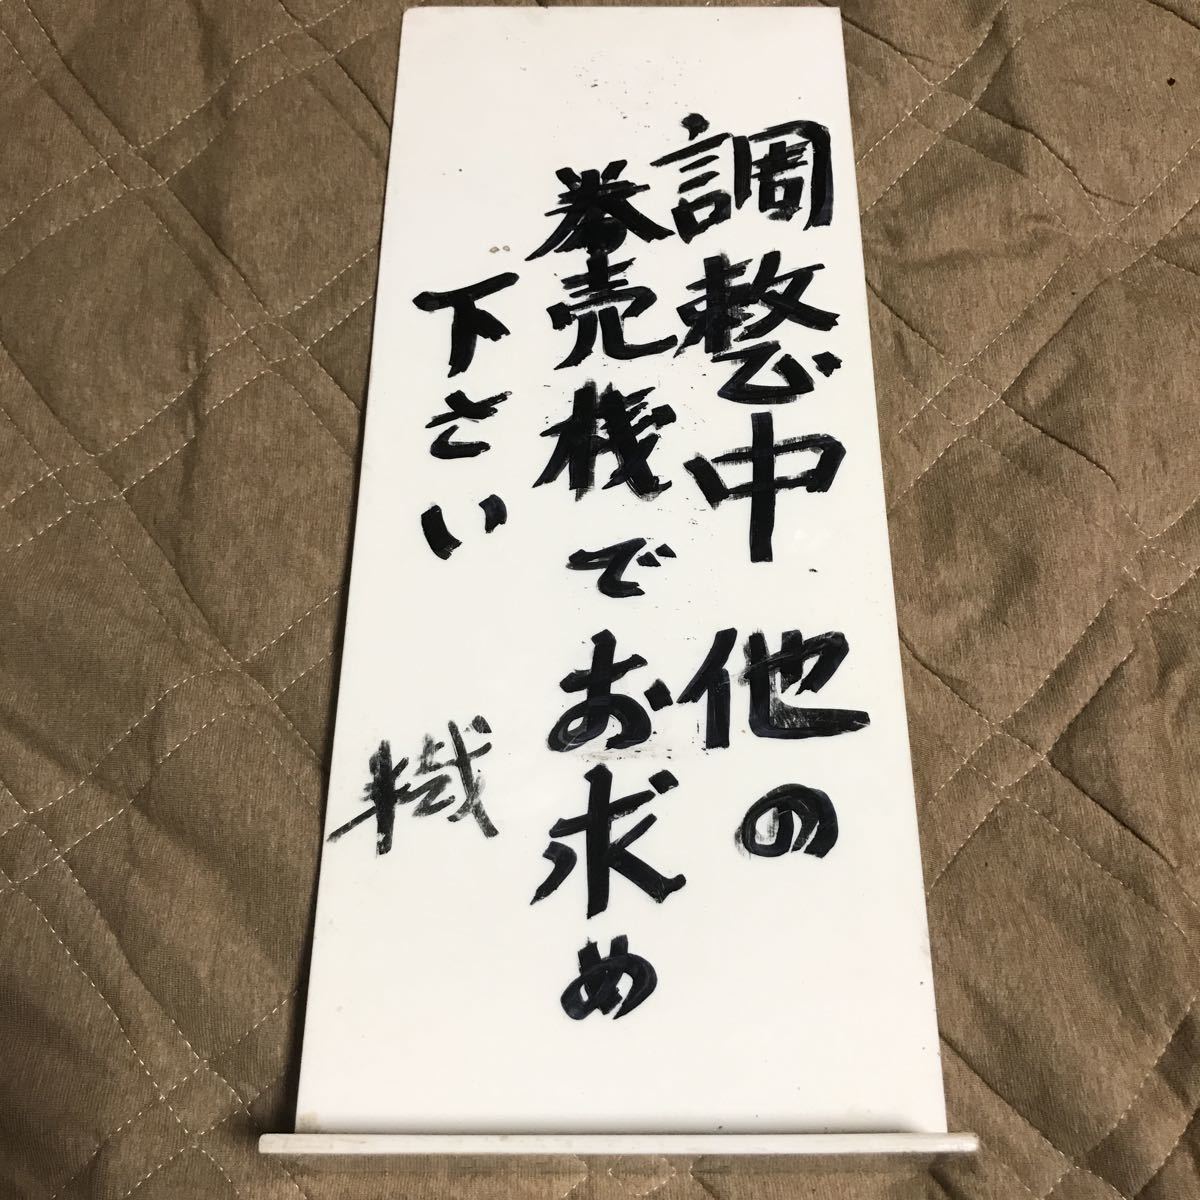 調整中 他の
券売機でお求め
下さい